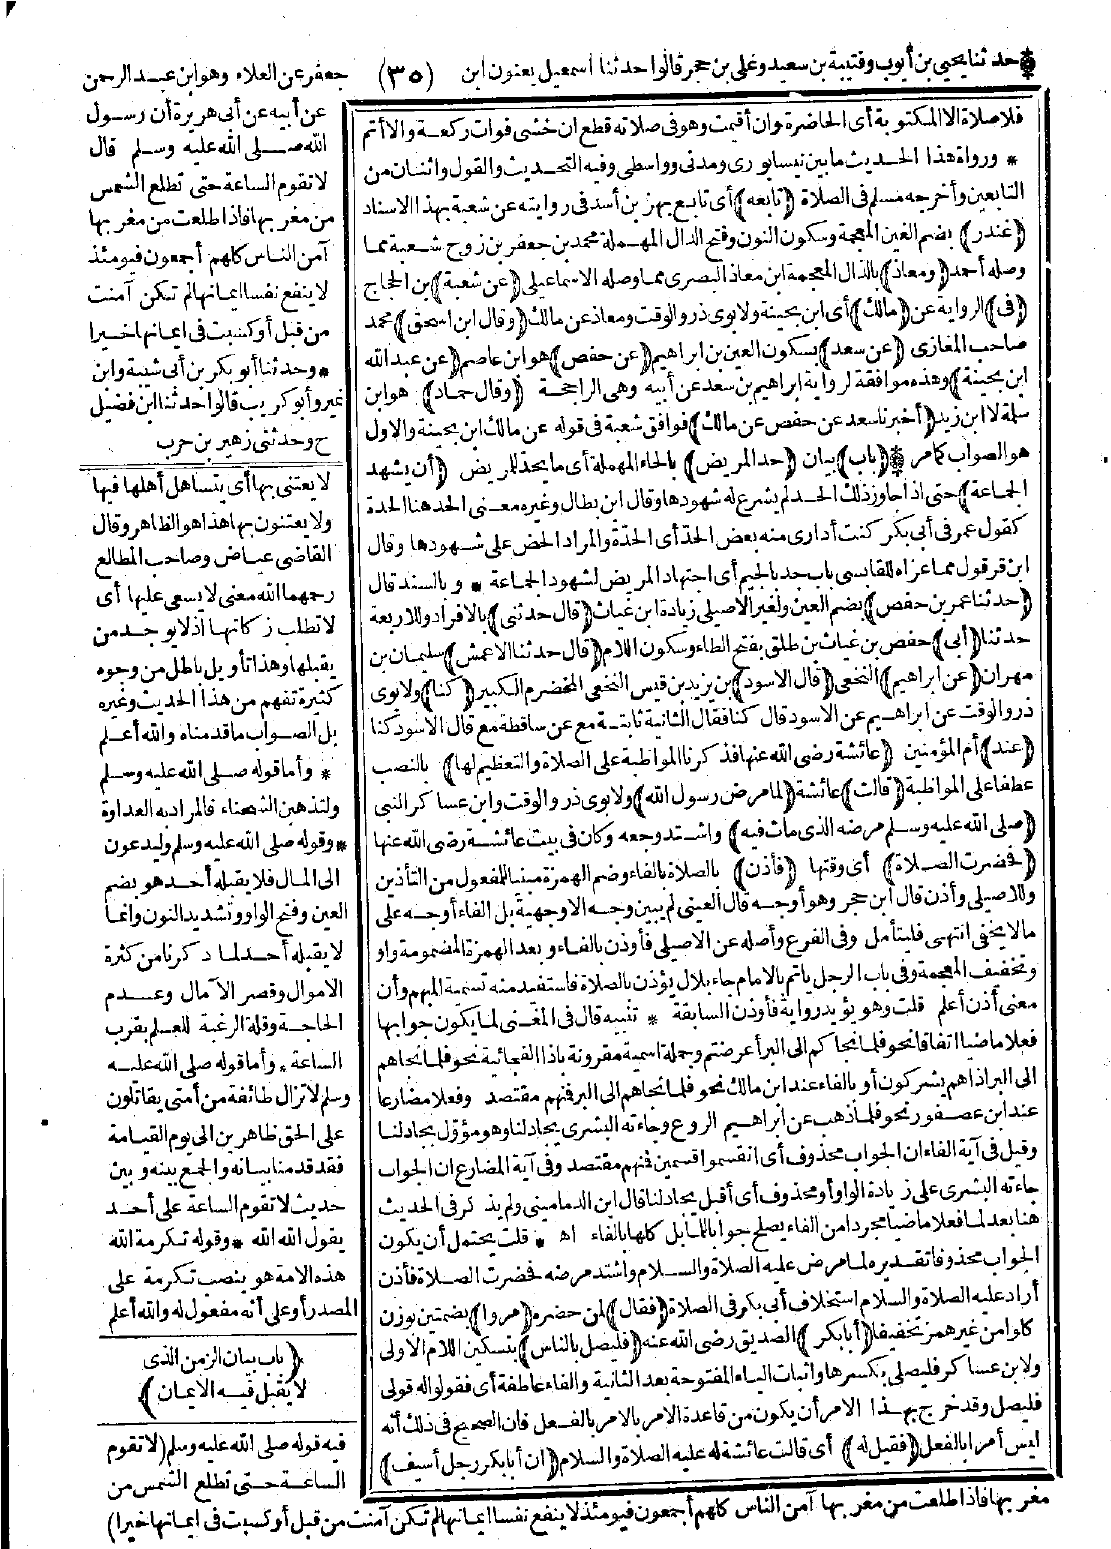 * حدثنا يحيى بن أيوب وقتيبة بن سعيد وعلي بن حجر قالوا حدثنا اسمعيل يعنون ابن
(٣٥)
جعفر عن العلاء وهو ابن عبد الرحمن
عن أبيه عن أبى هريرة أن رسول
الله صلى الله عليه وسلم قال
لا تقوم الساعة حتى تطلع الشمس
من مغربها فاذا طلعت من مغربها
آمن الناس كلهم أجمعون فيومئذ
لا ينفع نفسا ايمانها لم تكن آمنت
من قبل أو كسبت فى ايمانها خيرا
* وحدثنا أبو بكر بن أبى شيبة وابن
نمير وأبو كريب قالوا حدثنا ابن فضيل
ح وحدثنى زهير بن حرب
فلا صلاة الا المكتوبة أى الحاضرة وان أقيمت وهو فى صلاته قطع ان خشى فوات ركعة والا أتم
* ورواة هذا الحديث ما بين نيسابورى ومدنى وواسطى وفيه التحديث والقول واثنان من
التابعين وأخرجه مسلم فى الصلاة (تابعه) أى تابع بهز بن أسد فى روايته عن شعبة بهذا الاسناد
(غندر) بضم الغين المعجمة وسكون النون وفتح الدال المهملة محمد بن جعفر بن زوج شعبة مما
وصله أحمد (ومعاذ) بالذال المعجمة ابن معاذ البصرى مما وصله الاسماعيلى (عن شعبة) بن الحجاج
(فى) الرواية عن (مالك) أى ابن بحينة ولابوى ذر والوقت ومعاذ عن مالك (وقال ابن اسحق) محمد
صاحب المغازى (عن سعد) بسكون العين بن ابراهيم (عن حفص) هو ابن عاصم (عن عبد الله
ابن بحينة) وهذه موافقة لرواية ابراهيم بن سعد عن أبيه وهى الراجحة (وقال حماد) هو ابن
سلمة لا ابن زيد (أخبرنا سعد عن حفص عن مالك) فوافق شعبة فى قوله عن مالك ابن بحينة والاول
هو الصواب كما مر * (باب) بيان (حد المريض) بالحاء المهملة أى ما يحد للمريض (أن يشهد
الجماعة) حتى اذا جاوز ذلك الحد لم يشرع له شهودها وقال ابن بطال وغيره معنى الحد هنا الحدة
كقول عمر فى أبى بكر كنت أدارى منه بعض الحد أى الحدة والمراد الحض على شهودها وقال
ابن قرقول مما عزاه للقابسى باب جد بالجيم أى اجتهاد المريض لشهود الجماعة * وبالسند قال
(حدثنا عمر بن حفص) بضم العين ولغير الاصيلى زيادة ابن غياث (قال حدثنى) بالافراد وللاربعة
حدثنا (أبى) حفص بن غياث بن طلق بفتح الطاء وسكون اللام (قال حدثنا الاعمش) سليمان بن
مهران (عن ابراهيم) النخعى (قال الاسود) بن يزيد بن قيس النخعى المخضرم الكبير (كنا) ولابوى
ذر والوقت عن ابراهيم عن الاسود قال كنا فقال الثانية ثابتة مع عن ساقطة مع قال الاسود كنا
(عند) أم المؤمنين (عائشة رضى الله عنها فذكرنا المواظبة على الصلاة والتعظيم لها) بالنصب
عطفا على المواظبة (قالت) عائشة (لما مرض رسول الله) ولابوى ذر والوقت وابن عساكر النبى
(صلى الله عليه وسلم مرضه الذى مات فيه) واشتد وجعه وكان فى بيت عائشة رضى الله عنها
(فحضرت الصلاة) أى وقتها (فأذن) بالصلاة بالفاء وضم الهمزة مبنيا للمفعول من التأذين
وللاصيلى وأذن قال ابن حجر وهو أوجه قال العينى لم يبين وجه الاوجهية بل الفاء أوجه على
ما لا يخفى انتهى فليتأمل وفى الفرع وأصله عن الاصيلى فأوذن بالفاء وبعد الهمزة المضمومة واو
وتخفيف المعجمة وفى باب الرجل يأتم بالامام جاء بلال يؤذن بالصلاة فاستفيد منه تسمية المبهم وأن
معنى أذن أعلم قلت وهو يؤيد رواية فأوذن السابقة * تنبيه قال فى المغنى لما يكون جوابها
فعلا ماضيا اتفاقا نحو فلما نجاكم الى البر أعرضتم وجملة اسمية مقرونة باذا الفجائية نحو فلما نجاهم
الى البر اذا هم يشركون أو بالفاء عند ابن مالك نحو فلما نجاهم الى البر فمنهم مقتصد وفعلا مضارعا
عند ابن عصفور نحو فلما ذهب عن ابراهيم الروع وجاءته البشرى يجادلنا وهو مؤول بجادلنا
وقيل فى آية الفاء ان الجواب محذوف أى انقسموا قسمين فمنهم مقتصد وفى آية المضارع ان الجواب
جاءته البشرى على زيادة الواو أو محذوف أى أقبل يجادلنا قال ابن الدمامينى ولم يذكر فى الحديث
هنا بعد لما فعلا ماضيا مجردا من الفاء يصلح جوابا للما بل كلها بالفاء اه * قلت يحتمل أن يكون
الجواب محذوفا تقديره لما مرض عليه الصلاة والسلام واشتد مرضه فحضرت الصلاة فأذن
أراد عليه الصلاة والسلام استخلاف أبى بكر فى الصلاة (فقال) لمن حضره (مروا) بضمتين بوزن
كلوا من غير همز تخفيفا (أبا بكر) الصديق رضى الله عنه (فليصل بالناس) بتسكين اللام الاولى
ولابن عساكر فليصلى بكسرها واثبات الياء المفتوحة بعد الثانية والفاء عاطفة أى فقولوا له قولى
فليصل وقد خرج بهذا الامر أن يكون من قاعدة الامر بالامر بالفعل فان الصحيح فى ذلك أنه
ليس أمرا بالفعل (فقيل له) أى قالت عائشة له عليه الصلاة والسلام (ان أبا بكر رجل أسيف)
لا يعتنى بها أى يتساهل أهلها فيها
ولا يعتنون بها هذا هو الظاهر وقال
القاضى عياض وصاحب المطالع
رحمهما الله معنى لا يسعى عليها أى
لا تطلب زكاتها اذ لا يوجد من
يقبلها وهذا تأويل باطل من وجوه
كثيرة تفهم من هذا الحديث وغيره
بل الصواب ما قدمناه والله أعلم
* وأما قوله صلى الله عليه وسلم
ولتذهبن الشحناء فالمراد به العداوة
* وقوله صلى الله عليه وسلم وليدعون
الى المال فلا يقبله أحد هو بضم
العين وفتح الواو وتشديد النون وانما
لا يقبله أحد لما ذكرنا من كثرة
الاموال وقصر الآمال وعدم
الحاجة وقلة الرغبة للعلم بقرب
الساعة * وأما قوله صلى الله عليه
وسلم لا تزال طائفة من أمتى يقاتلون
على الحق ظاهرين الى يوم القيامة
فقد قدمنا بيانه والجمع بينه وبين
حديث لا تقوم الساعة على أحد
يقول الله الله * وقوله تكرمة الله
هذه الامة هو بنصب تكرمة على
المصدر أو على أنه مفعول له والله أعلم
(باب بيان الزمن الذى
لا يقبل فيه الايمان)
فيه قوله صلى الله عليه وسلم (لا تقوم
الساعة حتى تطلع الشمس من
مغربها فاذا طلعت من مغربها آمن الناس كلهم أجمعون فيومئذ لا ينفع نفسا ايمانها لم تكن آمنت من قبل أو كسبت فى ايمانها خيرا)